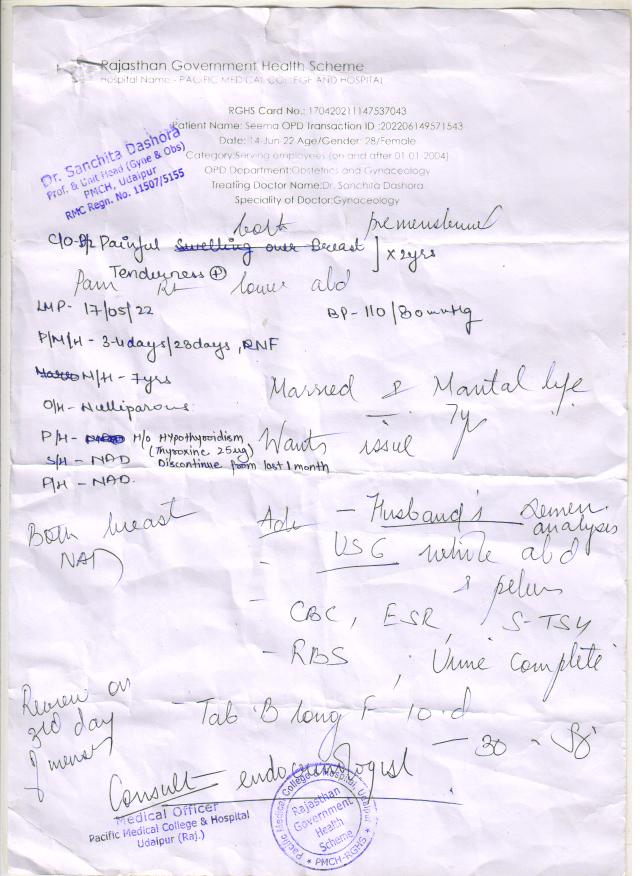 Rajasthan Government Health Scheme
Hospital Name - PACIFIC MEDICAL COLLEGE AND HOSPITAL
RGHS Card No.: 170420211147537043
Patient Name: Seema OPD Transaction ID :202206149571543
Date: 14-Jun-22 Age/Gender: 28/Female
Category:Serving employees (on and after 01-01-2004)
OPD Department:Obstetrics and Gynaecology
Treating Doctor Name:Dr. Sanchita Dashora
Speciality of Doctor:Gynaecology
Dr. Sanchita Dashora
Prof. & Unit Head (Gyne & Obs)
PMCH, Udaipur
RMC Regn. No. 11507/5155
both premenstrual
C/O- B/L Painful Swelling over Breast ] x 2yrs
Tenderness (+)
Pain Rt lower abd
LMP- 17/05/22
BP- 110/80mmHg
P/M/H - 3-4days/28days, RNF
M/H - 7yrs
Married & Marital life
7y
O/H - Nulliparous
Wants issue
P/H - H/o Hypothyroidism
(Thyroxine 25ug)
S/H - NAD Discontinue from last 1 month
F/H - NAD.
Both breast
NAD
Adv - Husband's Semen
analysis
- USG whole abd
& pelvis
- CBC, ESR, S-TSH
- RBS, Urine complete
Review on
3rd day
of menses
- Tab B long F 10-d
- 30 -
Consult endocrinologist
Medical Officer
Pacific Medical College & Hospital
Udaipur (Raj.)
Pacific Medical College & Hospital, Udaipur
Rajasthan
Government
Health
Scheme
* PMCH-RGHS *